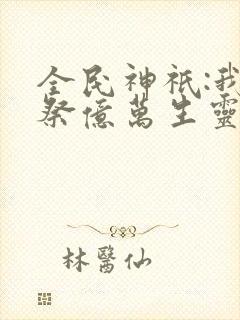 全民神祇:我
祭億萬生靈
林醫仙